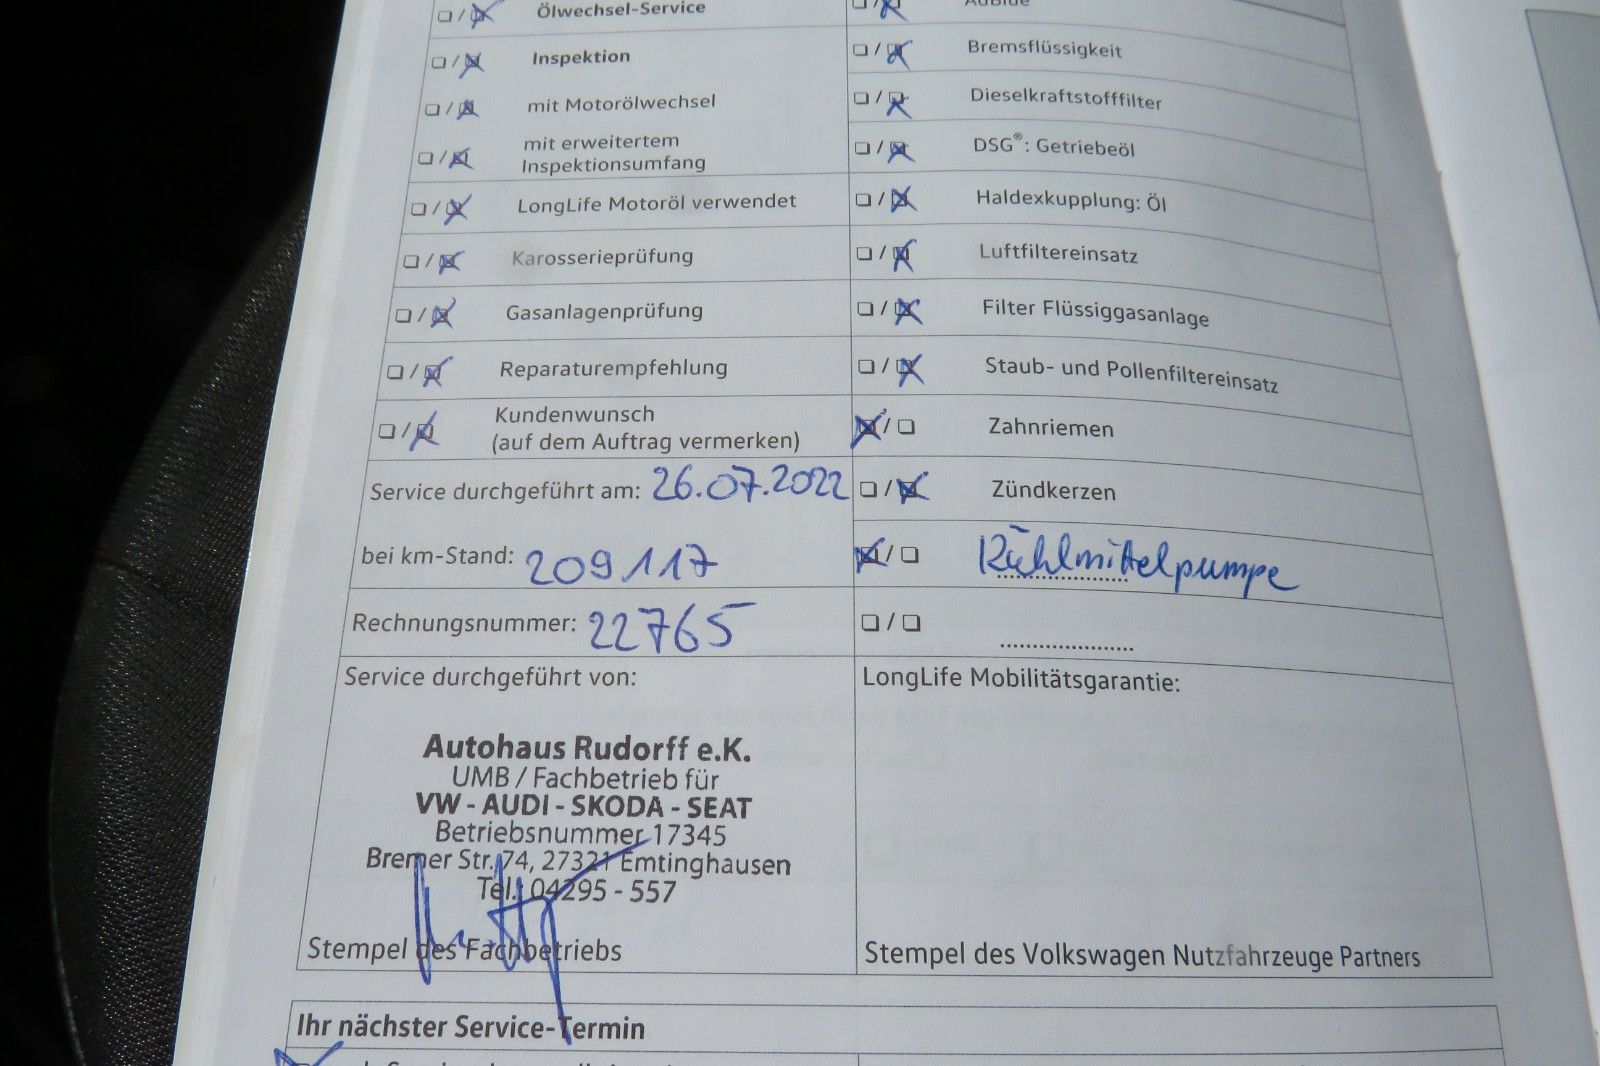 Ölwechsel-Service
Inspektion
mit Motorölwechsel
mit erweitertem
Inspektionsumfang
LongLife Motoröl verwendet
Karosserieprüfung
Gasanlagenprüfung
Reparaturempfehlung
Kundenwunsch
(auf dem Auftrag vermerken)
Service durchgeführt am: 26.07.2022
bei km-Stand: 209117
Rechnungsnummer: 22765
Service durchgeführt von:
Autohaus Rudorff e.K.
UMB / Fachbetrieb für
VW - AUDI - SKODA - SEAT
Betriebsnummer 17345
Bremer Str. 74, 27321 Emtinghausen
Tel. 04295 - 557
Stempel des Fachbetriebs
AdBlue
Bremsflüssigkeit
Dieselkraftstofffilter
DSG®: Getriebeöl
Haldexkupplung: Öl
Luftfiltereinsatz
Filter Flüssiggasanlage
Staub- und Pollenfiltereinsatz
Zahnriemen
Zündkerzen
Kühlmittelpumpe
LongLife Mobilitätsgarantie:
Stempel des Volkswagen Nutzfahrzeuge Partners
Ihr nächster Service-Termin